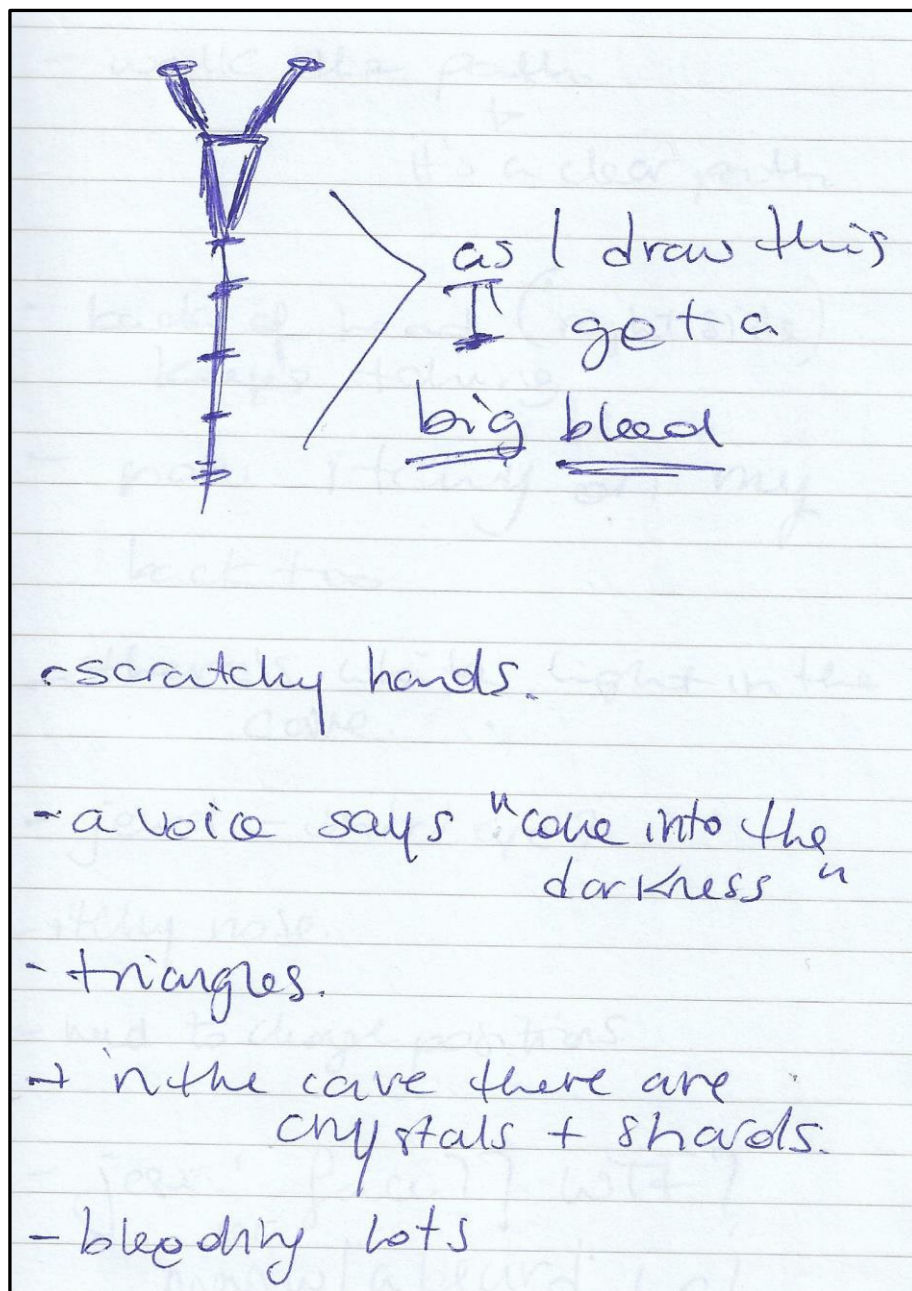 as I draw this
I get a
big bleed
- scratchy hands.
- a voice says "come into the
darkness"
- triangles.
- in the cave there are
crystals + shards.
- bleeding lots